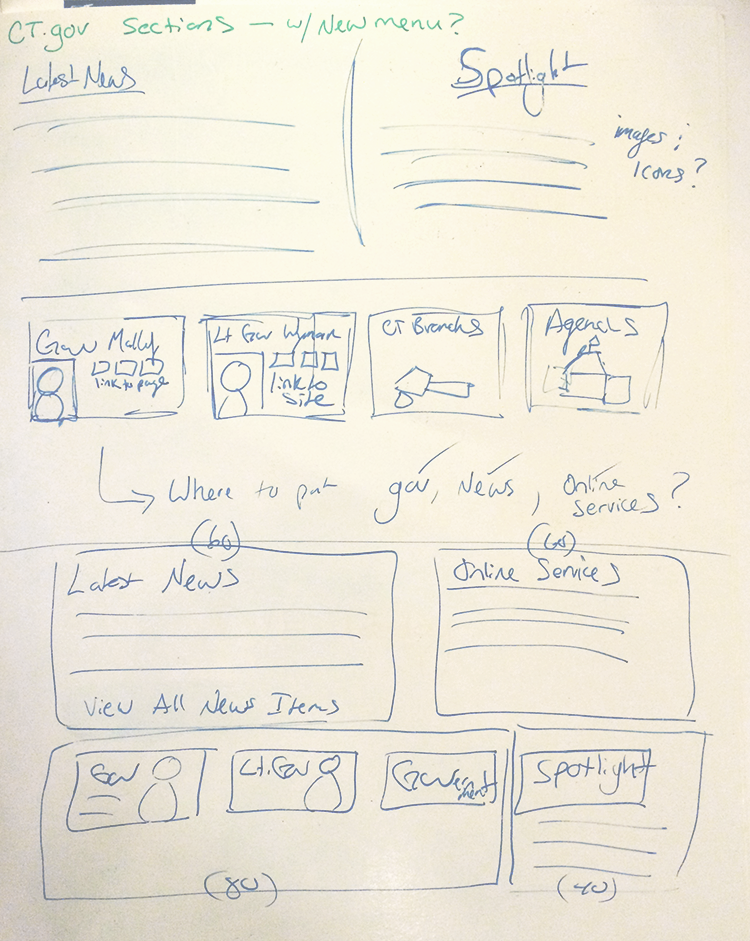 CT.gov Sections — w/ New menu?
Latest News
Spotlight
images;
Icons?
Gov Malloy
link to page
Lt Gov Wyman
link to
site
CT Branchs
Agencies
Where to put gov, News, Online
services?
Latest News
View All News Items
Online Services
Gov
Lt. Gov
Govern
ment
Spotlight